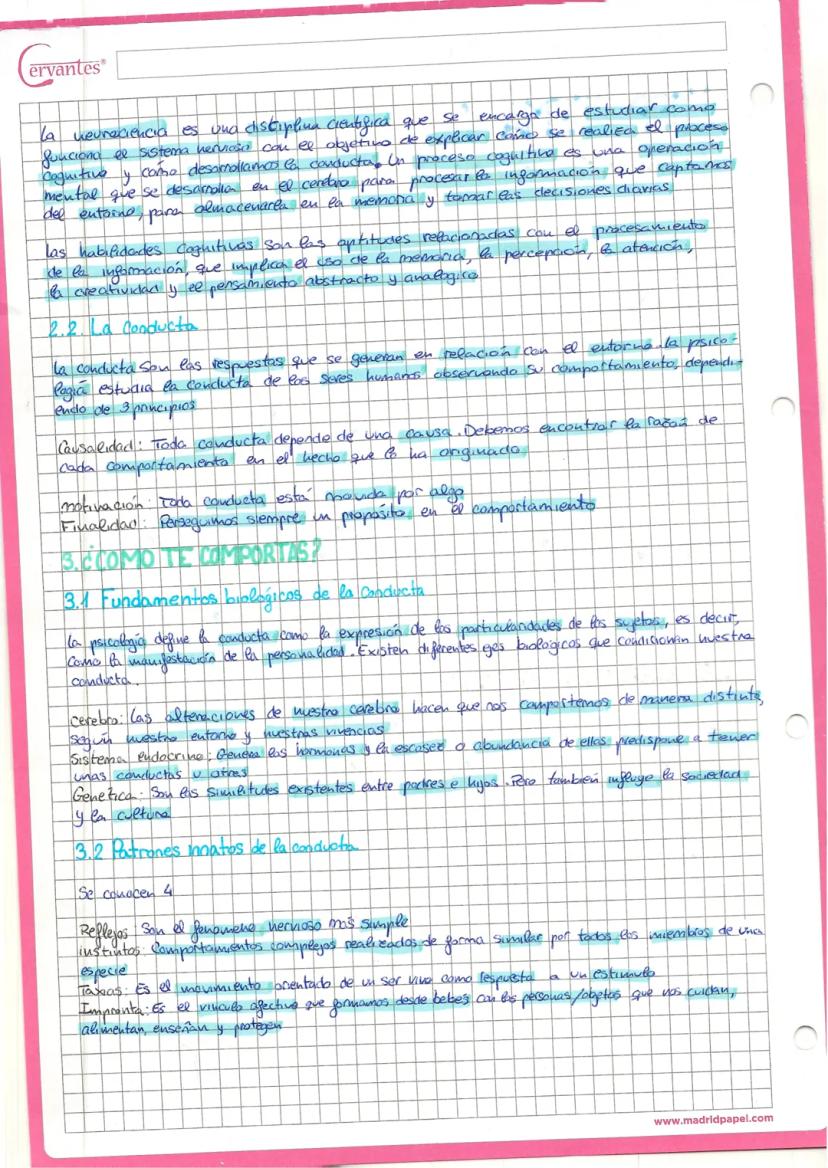 Cervantes®
La neurociencia es una disciplina científica que se encarga de estudiar como
funciona el sistema nervioso con el objetivo de explicar cómo se realiza el proceso
cognitivo y cómo desarrollamos la conducta. Un proceso cognitivo es una operación
mental que se desarrolla en el cerebro para procesar la información que captamos
del entorno, para almacenarla en la memoria y tomar las decisiones diarias
Las habilidades cognitivas son las aptitudes relacionadas con el procesamiento
de la información, que implica el uso de la memoria, la percepción, la atención,
la creatividad y el pensamiento abstracto y analógico
2.2. La conducta
La conducta son las respuestas que se generan en relación con el entorno. la psico-
logía estudia la conducta de los seres humanos observando su comportamiento, dependi-
endo de 3 principios
Causalidad: Toda conducta depende de una causa. Debemos encontrar la razón de
cada comportamiento en el hecho que lo ha originado
motivación: Toda conducta está movida por algo
Finalidad: Perseguimos siempre un propósito en el comportamiento
3. ¿COMO TE COMPORTAS?
3.1 Fundamentos biológicos de la conducta
La psicología define la conducta como la expresión de las particularidades de los sujetos, es decir,
como la manifestación de la personalidad. Existen diferentes ejes biológicos que condicionan nuestra
conducta.
cerebro: Las alteraciones de nuestro cerebro hacen que nos comportemos de manera distinta,
según nuestro entorno y nuestras vivencias
Sistema endocrino: Genera las hormonas y la escasez o abundancia de ellas predispone a tener
unas conductas u otras
Genética: Son las similitudes existentes entre padres e hijos. Pero también influye la sociedad
y la cultura
3.2 Patrones innatos de la conducta
Se conocen 4
Reflejos Son el fenómeno nervioso más simple
instintos: Comportamientos complejos realizados de forma similar por todos los miembros de una
especie
Taxias: Es el movimiento orientado de un ser vivo como respuesta a un estímulo
Impronta: Es el vínculo afectivo que formamos desde bebes con las personas/objetos que nos cuidan,
alimentan, enseñan y protegen
www.madridpapel.com